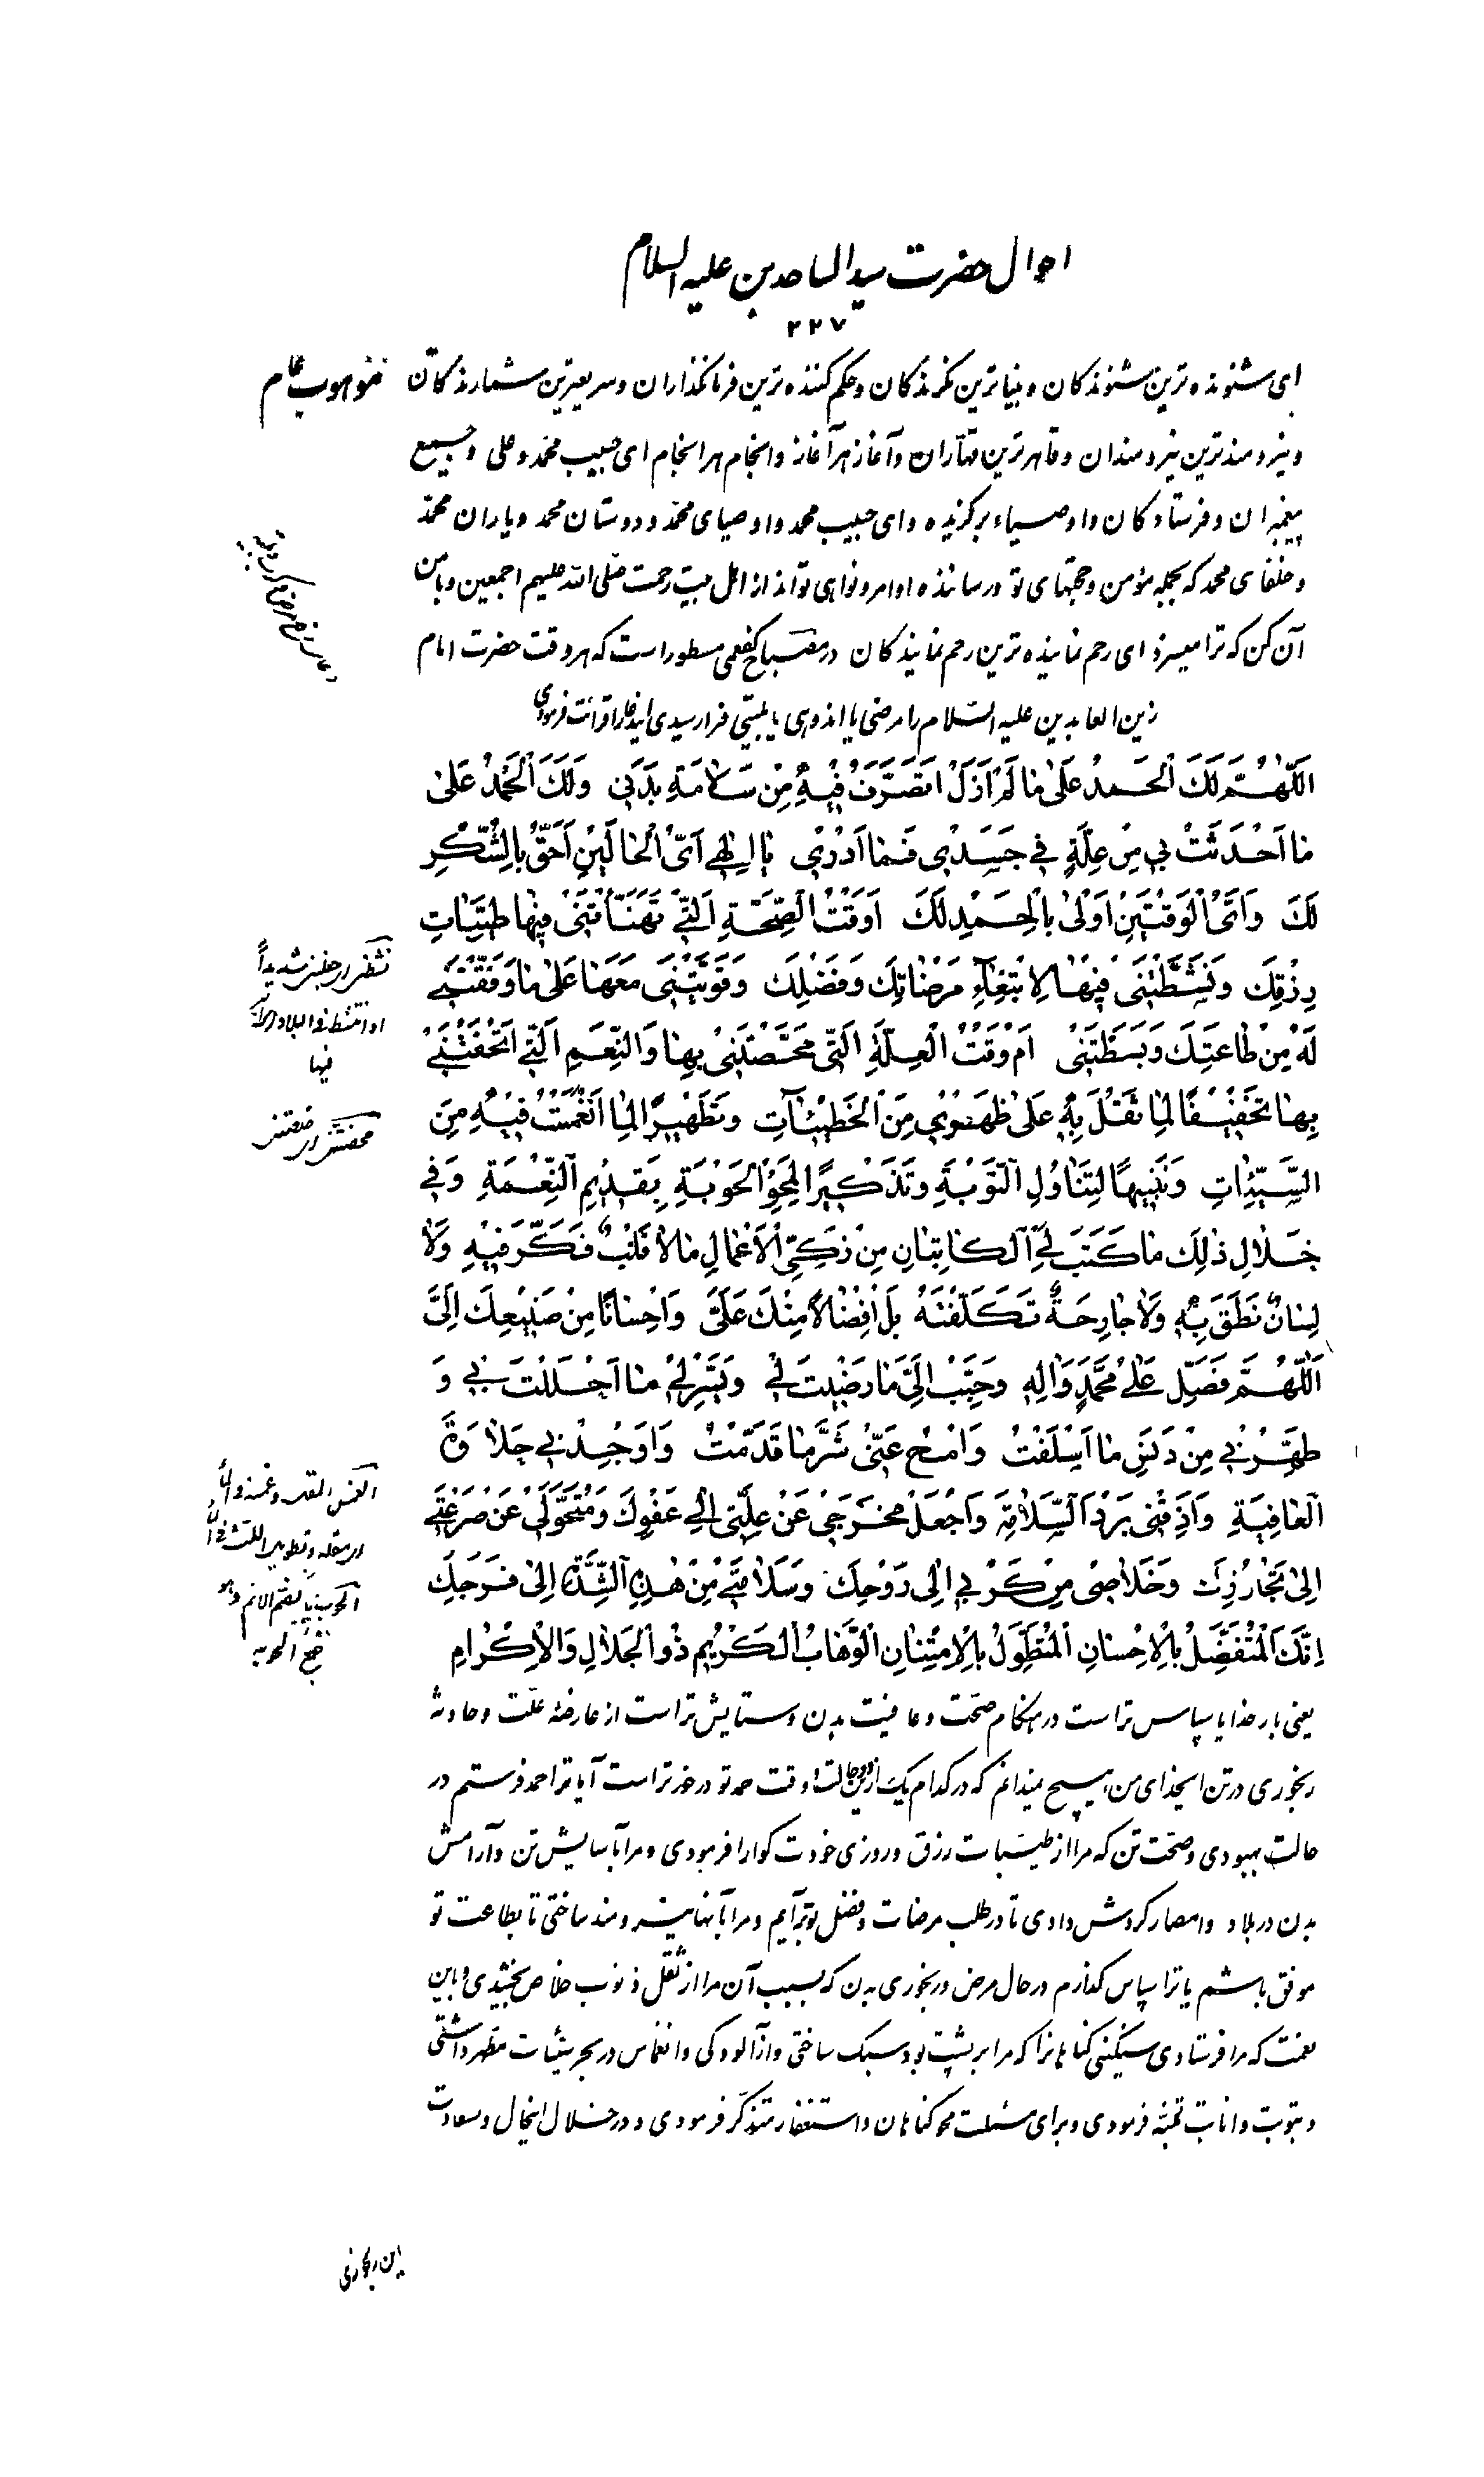 احوال حضرت سید الساجدین علیه السلام
۲۲۷
ای شنونده ترین شنوندکان و بینا ترین نکرندکان و حکم کننده ترین فرمانکذاران و سریعترین شمارندکان
و نیرومندترین نیرومندان و قاهرترین قهّاران و آغاز هر آغاز و انجام هر انجام ای حبیب محمّد و علی و جمیع
پیغمبران و فرستادکان و اوصیاء برکزیده و ای حبیب محمد و اوصیای محمّد و دوستان محمد و یاران محمّد
و خلفای محمد که بجمله مؤمن و حجتهای تو و رساننده اوامر و نواهی تواند از اهل بیت رحمت صلی الله علیهم اجمعین و با من
آن کن که ترا میسزد ای رحم نماینده ترین رحم نمایندکان در مصباح کفعمی مسطور است که هر وقت حضرت امام
زین العابدین علیه السّلام را مرضی یا اندوهی یا بلیتی فرا رسیدی این دعا را قرائت فرمودی
اَللّٰهُمَّ لَكَ الْحَمدُ عَلىٰ مٰا لَمْ اَزَلْ اَتَصَرَّفُ فيٖهِ مِنْ سَلاٰمَةِ بَدَنيٖ وَلَكَ الْحَمْدُ عَلىٰ
مٰا اَحْدَثْتَ بيٖ مِنْ عِلَّةٍ فيٖ جَسَديٖ فَمٰا اَدْرٖي يٰا اِلٰهيٖ اَيُّ الْحٰالَيْنِ اَحَقُّ بِالشُّكْرِ
لَكَ وَاَيُّ الْوَقْتَيْنِ اَوْلىٰ بِالْحَمْدِ لَكَ اَوَقْتُ الصِّحَّةِ الَّتيٖ هَنَّأْتَنيٖ فيٖهٰا طَيِّبٰاتِ
رِزْقِكَ وَنَشَّطْتَنيٖ فيٖهٰا لاِبْتِغٰاءِ مَرْضٰاتِكَ وَفَضْلِكَ وَقَوَّيْتَنيٖ مَعَهٰا عَلىٰ مٰا وَفَّقْتَنيٖ
لَهُ مِنْ طٰاعَتِكَ وَبَسَطْتَنيٖ اَمْ وَقْتُ الْعِلَّةِ الَّتيٖ مَحَّصْتَنيٖ بِهٰا وَالنِّعَمِ الَّتيٖ اَتْحَفْتَنيٖ
بِهٰا تَخْفيٖفًا لِمٰا ثَقُلَ بِهٖ عَلىٰ ظَهْريٖ مِنَ الْخَطيٖئٰاتِ وَتَطْهيٖرًا لِمَا انْغَمَسْتُ فيٖهِ مِنَ
السَّيِّئٰاتِ وَتَنْبيٖهًا لِتَنٰاوُلِ التَّوْبَةِ وَتَذْكيٖرًا لِمَحْوِ الْحَوْبَةِ بِقَديٖمِ النِّعْمَةِ وَفيٖ
خِلاٰلِ ذٰلِكَ مٰا كَتَبَ لِيَ الْكٰاتِبٰانِ مِنْ زَكِيِّ الْاَعْمٰالِ مٰا لاٰ قَلْبٌ فَكَّرَ فيٖهِ وَلاٰ
لِسٰانٌ نَطَقَ بِهٖ وَلاٰ جٰارِحَةٌ تَكَلَّفَتْهُ بَلْ اِفْضٰالاً مِنْكَ عَلَيَّ وَاِحْسٰانًا مِنْ صَنيٖعِكَ اِلَيَّ
اَللّٰهُمَّ فَصَلِّ عَلىٰ مُحَمَّدٍ وَاٰلِهٖ وَحَبِّبْ اِلَيَّ مٰا رَضيٖتَ ليٖ وَيَسِّرْ ليٖ مٰا اَحْلَلْتَ بيٖ وَ
طَهِّرْنيٖ مِنْ دَنَسِ مٰا اَسْلَفْتُ وَامْحُ عَنّيٖ شَرَّ مٰا قَدَّمْتُ وَاَوْجِدْنيٖ حَلاٰوَةَ
الْعٰافِيَةِ وَاَذِقْنيٖ بَرْدَ السَّلاٰمَةِ وَاجْعَلْ مَخْرَجيٖ عَنْ عِلَّتيٖ اِلىٰ عَفْوِكَ وَمُتَحَوَّليٖ عَنْ صَرْعَتيٖ
اِلىٰ تَجٰاوُزِكَ وَخَلاٰصيٖ مِنْ كَرْبيٖ اِلىٰ رَوْحِكَ وَسَلاٰمَتيٖ مِنْ هٰذِهِ الشِّدَّةِ اِلىٰ فَرَجِكَ
اِنَّكَ الْمُتَفَضِّلُ بِالْاِحْسٰانِ الْمُتَطَوِّلُ بِالْاِمْتِنٰانِ الْوَهّٰابُ الْكَريٖمِ ذُو الْجَلاٰلِ وَالْاِكْرٰامِ
یعنی بار خدایا سپاس تراست در هنکام صحّت و عافیت بدن و ستایش تراست از عارضهٔ علّت و حادثه
رنجوری در تن ایخدای من هیچ میندانم که در کدام یک ازین دو حالت و وقت حمد تو در خور تر است آیا ترا حمد فرستم در
حالت بهبودی و صحّت تن که مرا از طیّبات رزق و روزی خودت کوارا فرمودی و مرا بآسایش تن و آرامش
بدن در بلاد و امصار کردش دادی تا در طلب مرضات و فضل تو برآیم و مرا بآنها نیرومند ساختی تا بطاعت تو
موفق باشم یا ترا سپاس کذارم در حال مرض و رنجوری بدن که بسبب آن مرا از ثقل ذنوب خلاص بخشیدی و باین
نعمت که مرا فرستادی سنکینی کناهانرا که مرا بر پشت بود سبک ساختی و از آلودکی و انغماس در بحر سیّئات مطهّر داشتی
و بتوبت و انابت تنبیه فرمودی و برای مسئلت محو کناهان و استغفار متذکّر فرمودی و در خلال اینحال و سعادت
نشط
او انتشط فی البلاد
فیها
این رنجوری